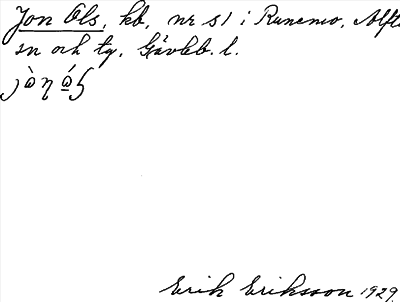 Jon Ols, kb, nr 51 i Runemo, Alfta
sn och tg, Gävleb. l.
Erik Eriksson 1929.